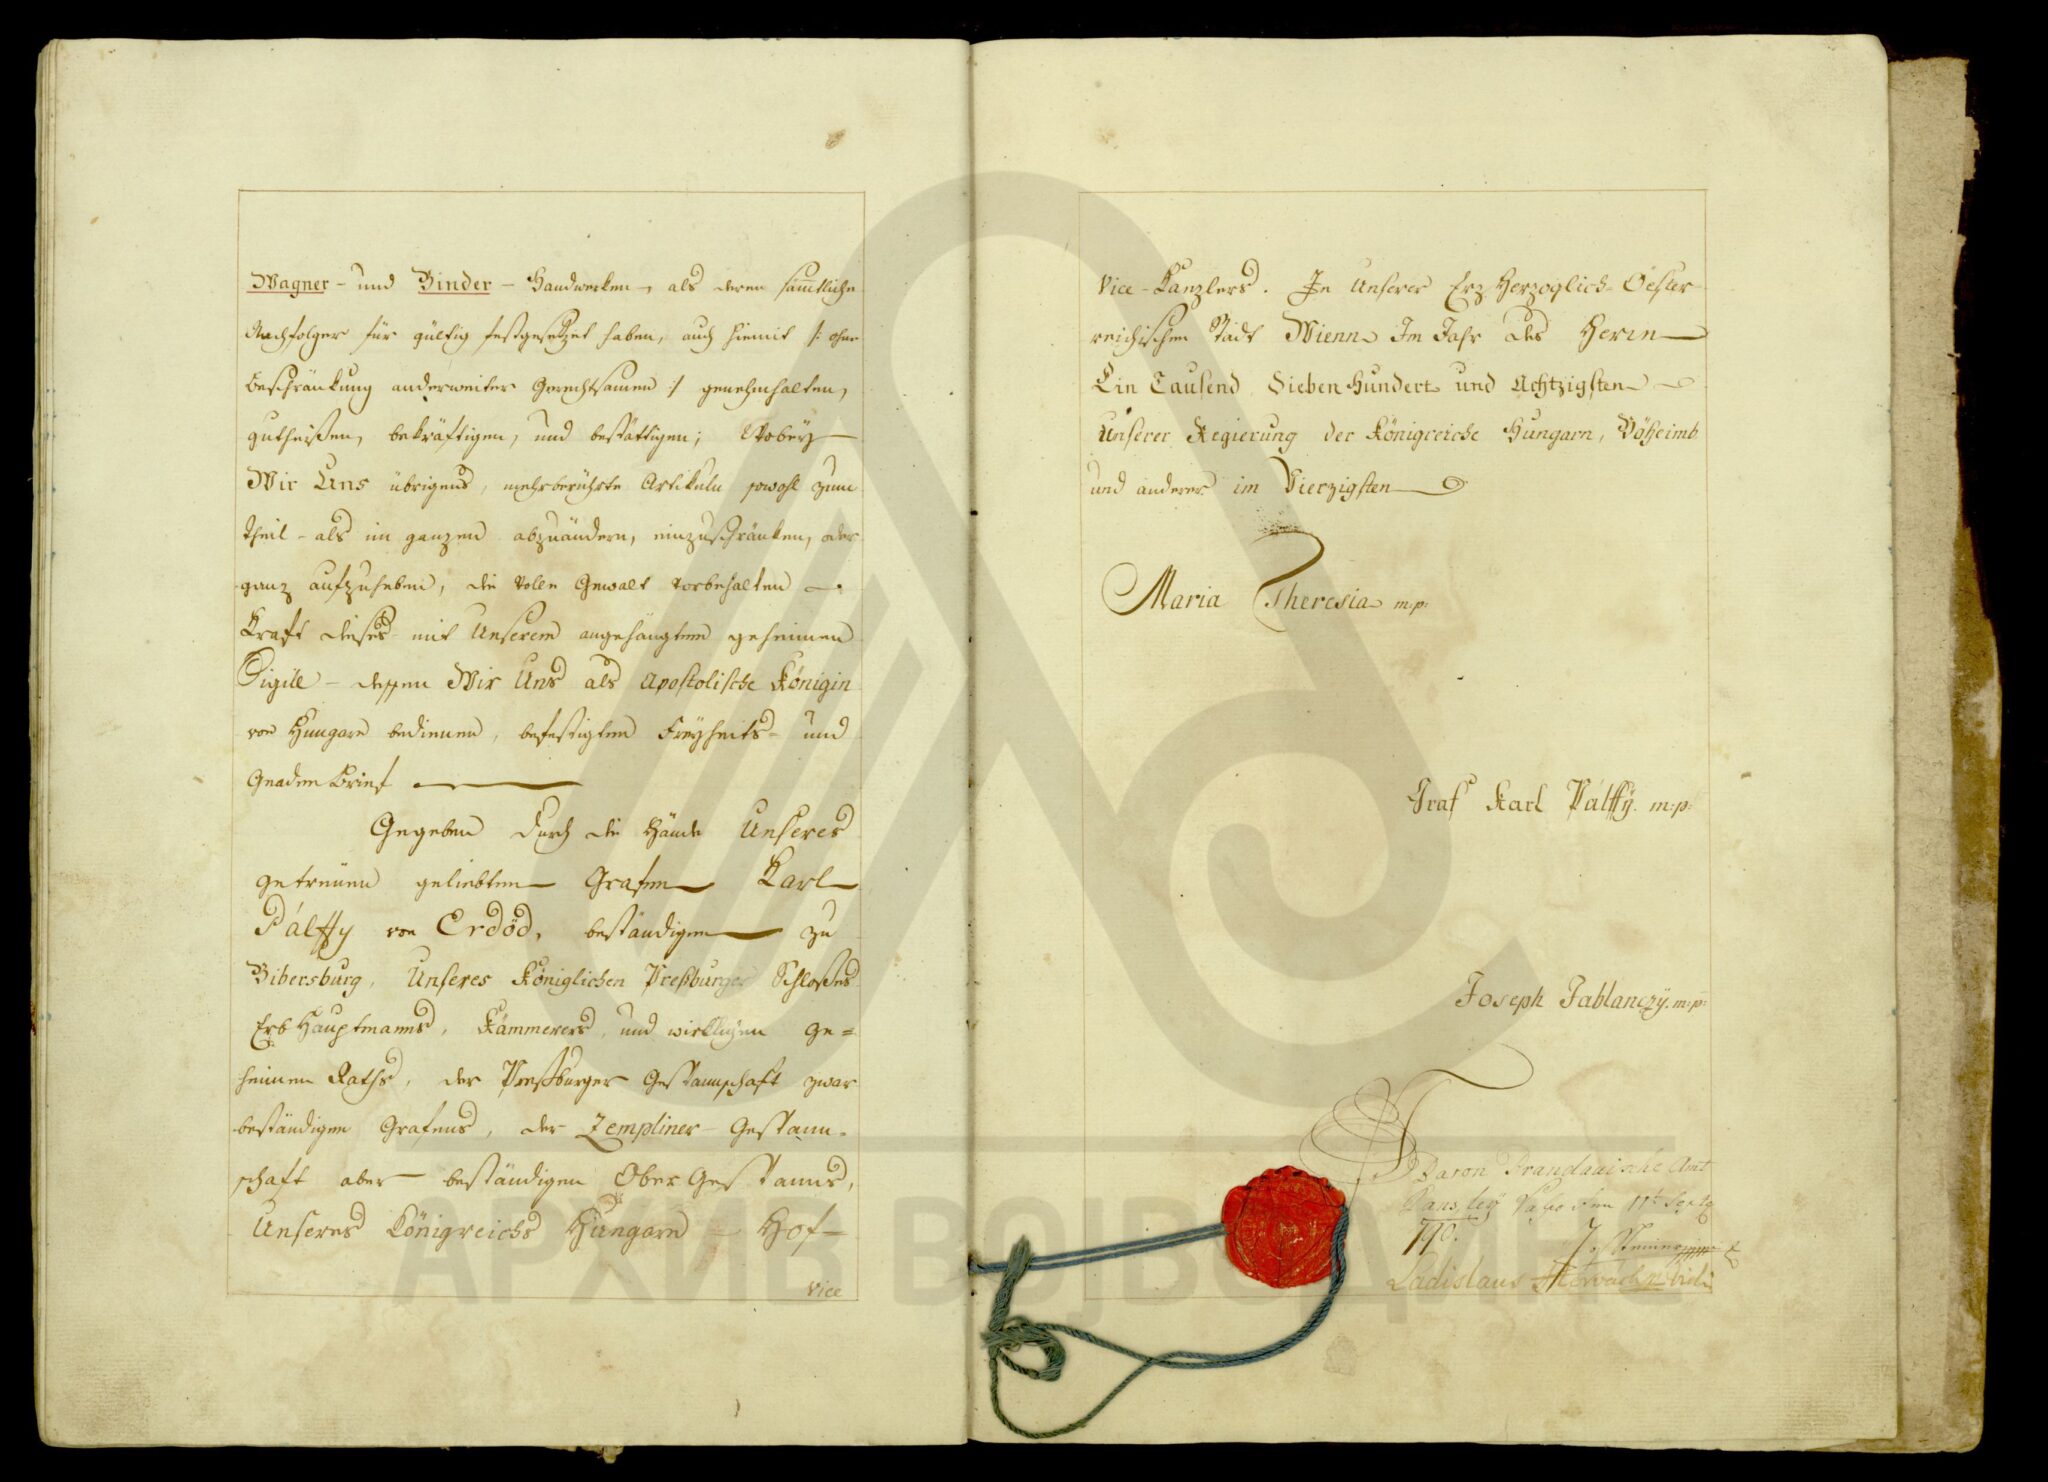 Wagner - und Binder - Handwerken, als deren sämmtliche
Nachfolger für gültig festgesetzet haben, auch hiemit /: ohne
Beschränkung anderweiter Gerechtsamen :/ genehmhalten,
gutheißen, bekräftigen, und bestättigen; Wobey
Wir Uns übrigens, mehrberührte Artikuln sowohl zum
theil - als im ganzen abzuändern, einzuschränken, oder
ganz aufzuheben, die volle Gewalt vorbehalten.
Kraft dieses mit Unserem angehängtem geheimen
Sigill - dessen Wir Uns als Apostolische Königin
von Hungarn bedienen, befestigten Freyheits- und
Gnadenbrief
Gegeben durch die Hände Unseres
getreuen geliebten Grafen Karl
Pálffy von Erdöd, beständigen zu
Bibersburg, Unseres Königlichen Preßburger Schloßes
Erb Hauptmanns, Kämmerers, und wirklichen ge=
heimen Raths, der Preßburger Gespannschaft zwar
beständigen Grafens, der Zempliner - Gespann-
schaft aber beständigen Ober Gespanns,
Unseres Königreichs Hungarn - Hof-
Vice
Vice - Kanzlers. In Unserer Erz Herzoglich- Oester-
reichischen Stadt Wienn Im Jahr des Herrn
Ein Tausend Sieben Hundert und Achtzigsten
Unserer Regierung der Königreiche Hungarn, Böheimb
und anderer im Vierzigsten
Maria Theresia m:p:
Graf Karl Pálffy. m:p:
Joseph Jablanczÿ. m:p:
Baron Brandauische Amt
den 11t Septb
790.
Ladislaus
АРХИВ ВОЈВОДИНЕ